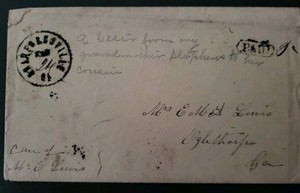 A letter from my
grandmother Stephens to her
cousin
PAID
Mrs E M Lewis
Oglethorpe
Ga
Care of
Mr Lewis